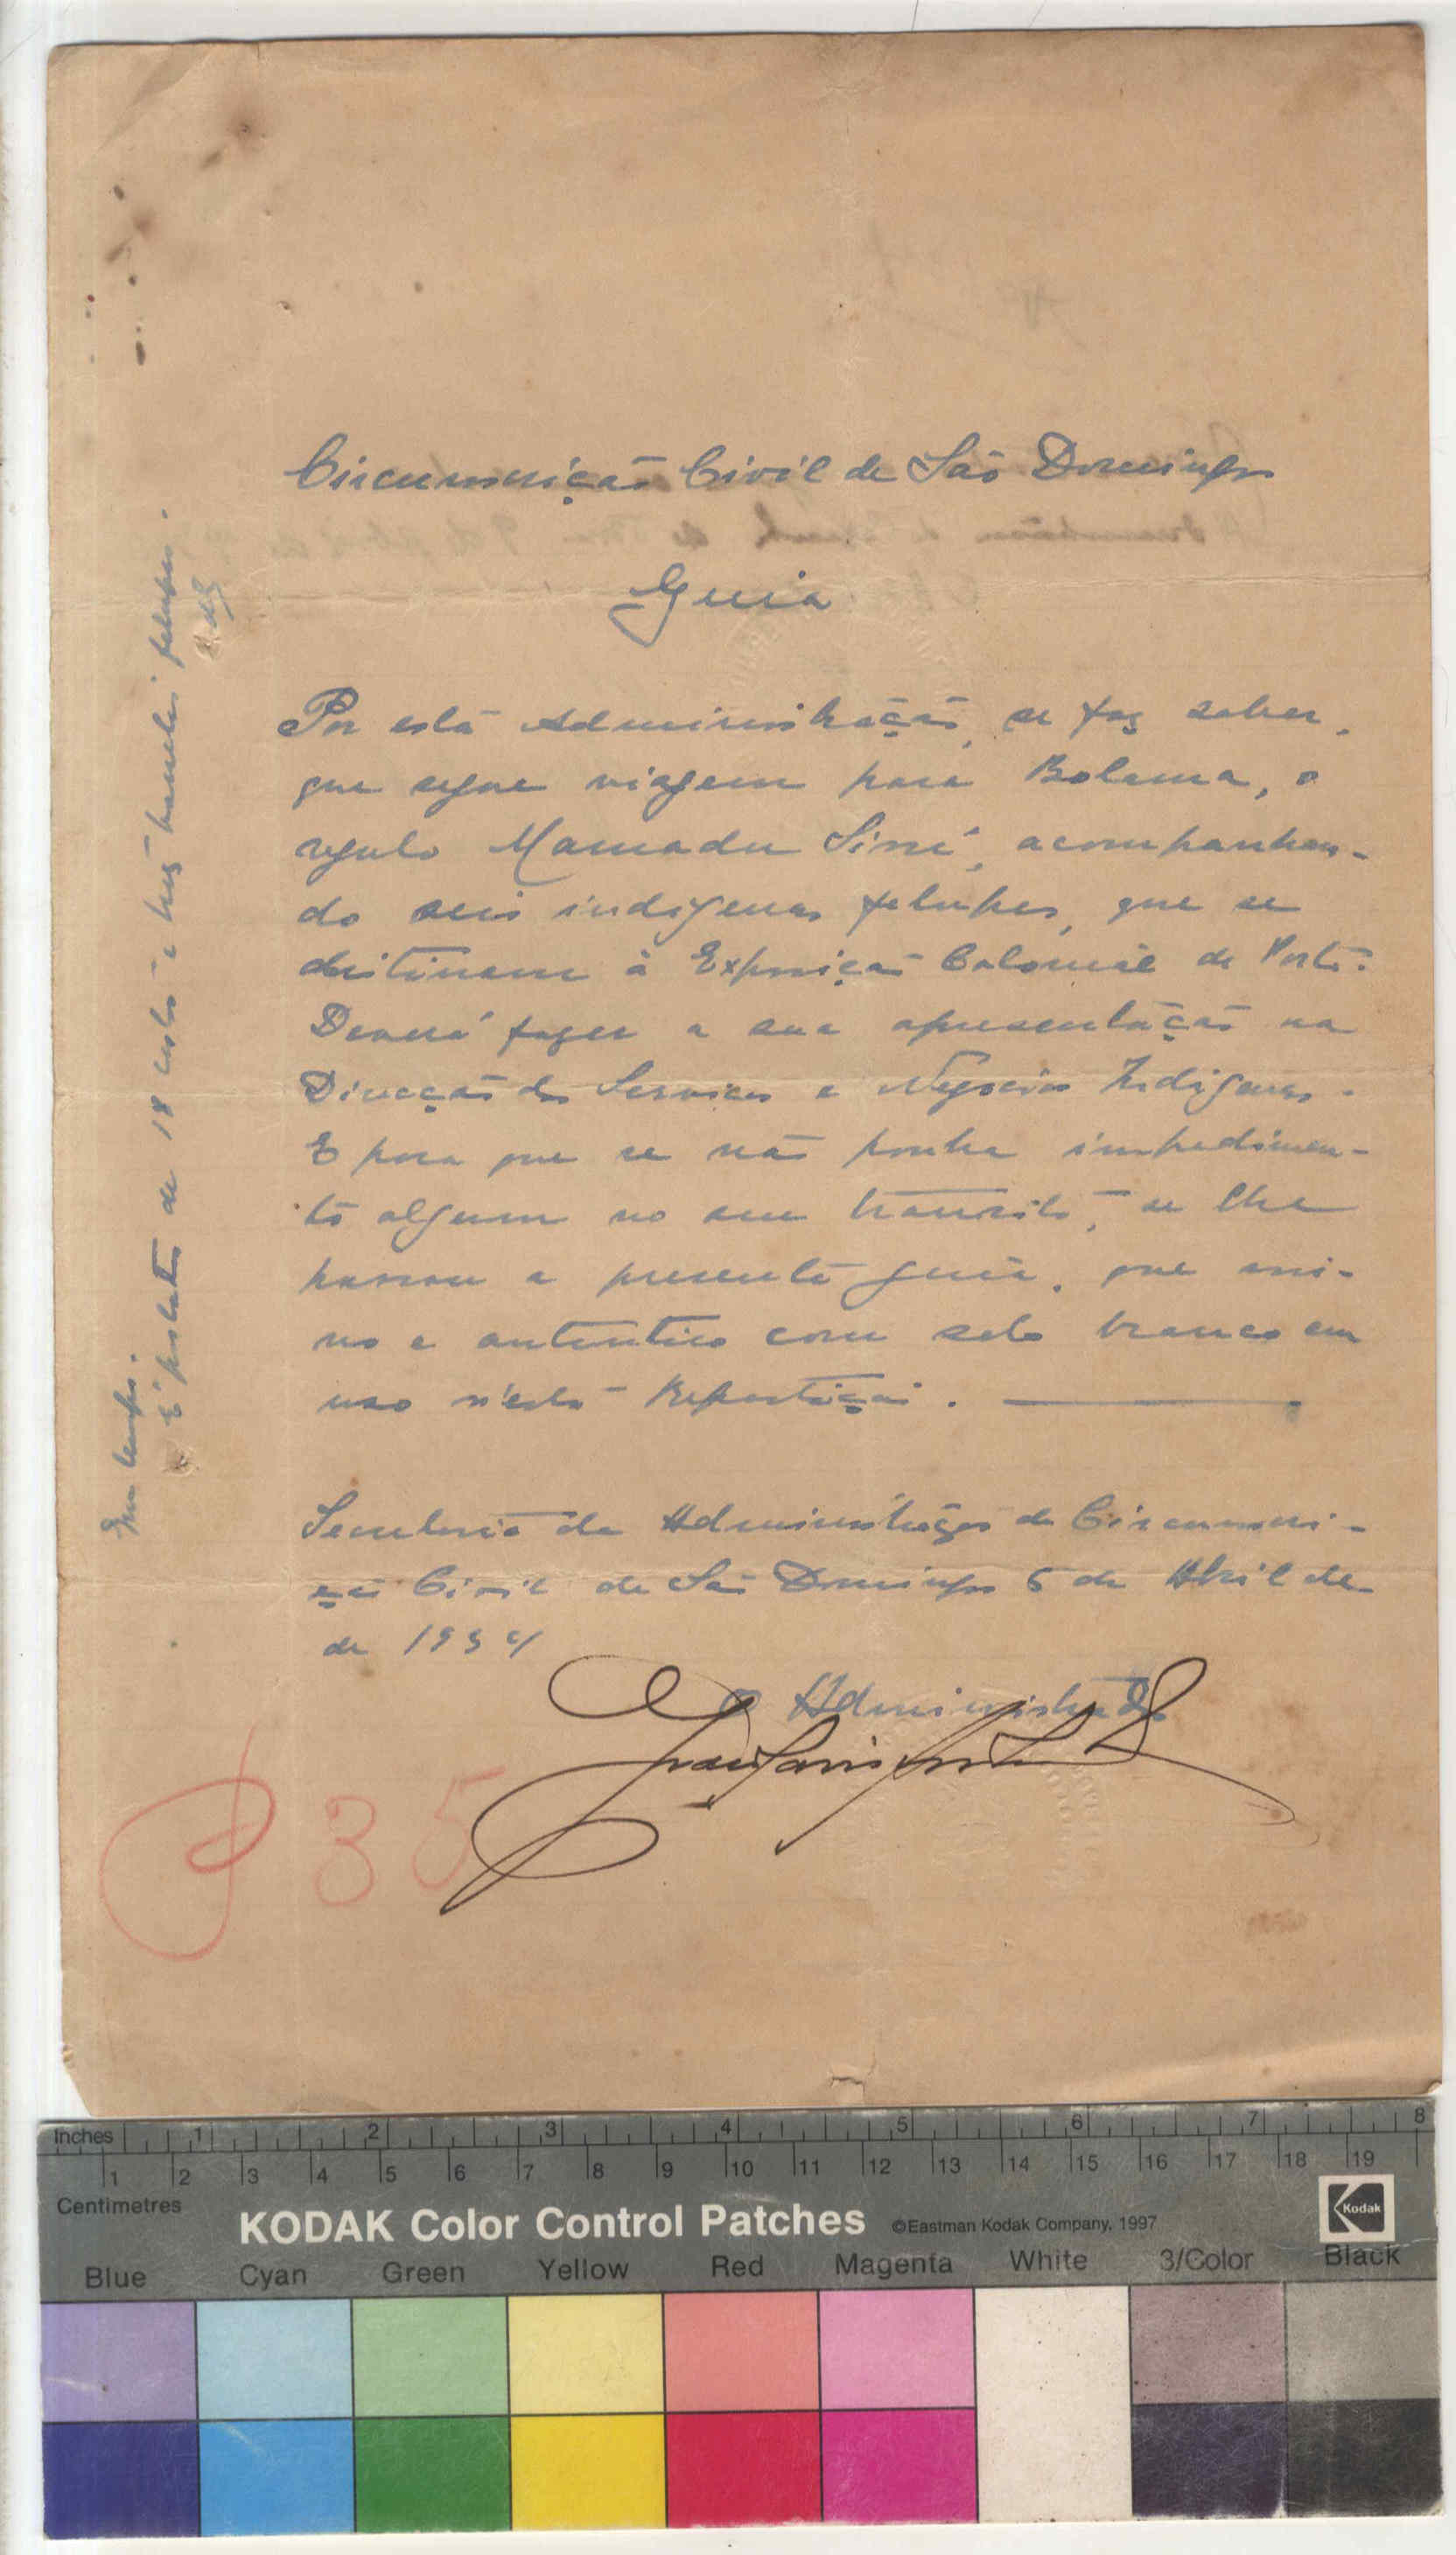 Circunscrição Civil de São Domingos
Guia
Por esta Administração, se faz saber,
que segue viagem para Bolama, o
regulo Mamadu Siné, acompanhan-
do seis indigenas felupes, que se
destinam á Exposição Colonial do Porto.
Deverá fazer a sua apresentação na
Direcção dos Serviços e Negocios Indigenas.
E para que se não ponha impedimen-
to algum no seu transito, se lhe
passou a presente guia, que assi-
no e autentico com selo branco em
uso n'esta Repartição.
Secretaria da Administração da Circunscri-
ção Civil de São Domingos 5 de Abril de
de 1934
O Administrador
35
Em tempo.
É portador de 18 cestos e tres felupes.
KODAK Color Control Patches
©Eastman Kodak Company, 1997
Kodak
Inches 1 2 3 4 5 6 7 8
1 2 3 4 5 6 7 8 9 10 11 12 13 14 15 16 17 18 19
Centimetres
Blue Cyan Green Yellow Red Magenta White 3/Color Black